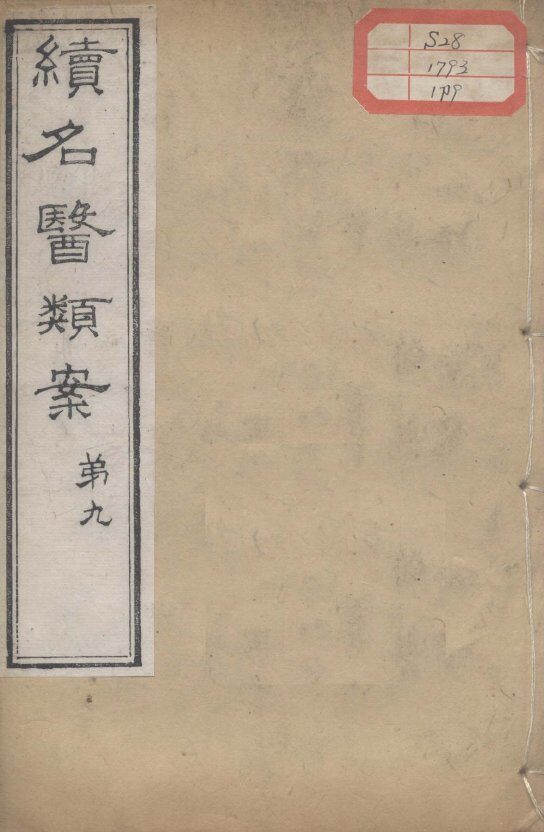 續名醫類案
弟九
S28
1793
1:19